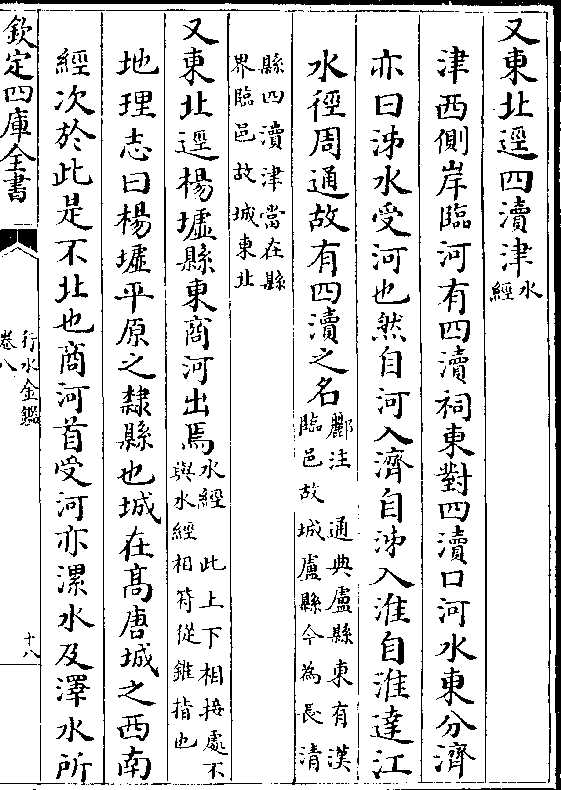 又東北逕四瀆津水
經
津西側岸臨河有四瀆祠東對四瀆口河水東分濟
亦曰泲水受河也然自河入濟自泲入淮自淮達江
水徑周通故有四瀆之名酈注　通典盧縣東有漢
臨邑故城盧縣今為長清
縣四瀆津當在縣
界臨邑故城東北
又東北逕楊墟縣東商河出焉水經　此上下相接處不
與水經相符從錐指也
地理志曰楊墟平原之隸縣也城在高唐城之西南
經次於此是不北也商河首受河亦漯水及澤水所
欽定四庫全書
行水金鑑
卷八
十八